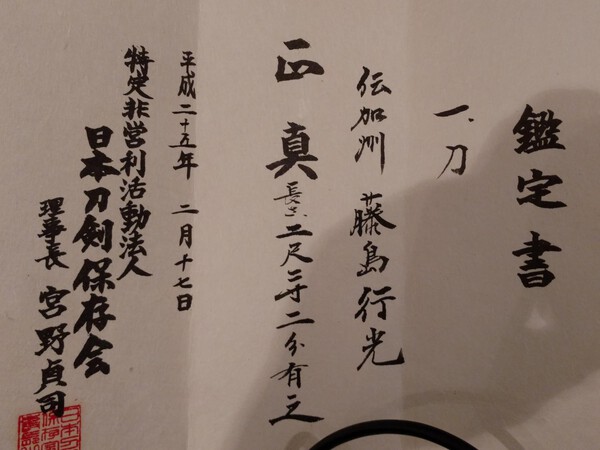 鑑定書
一、刀
伝加州藤島行光
正真
長さ二尺二寸二分有之
平成二十五年二月十七日
特定非営利活動法人
日本刀剣保存会
理事長 宮野貞司